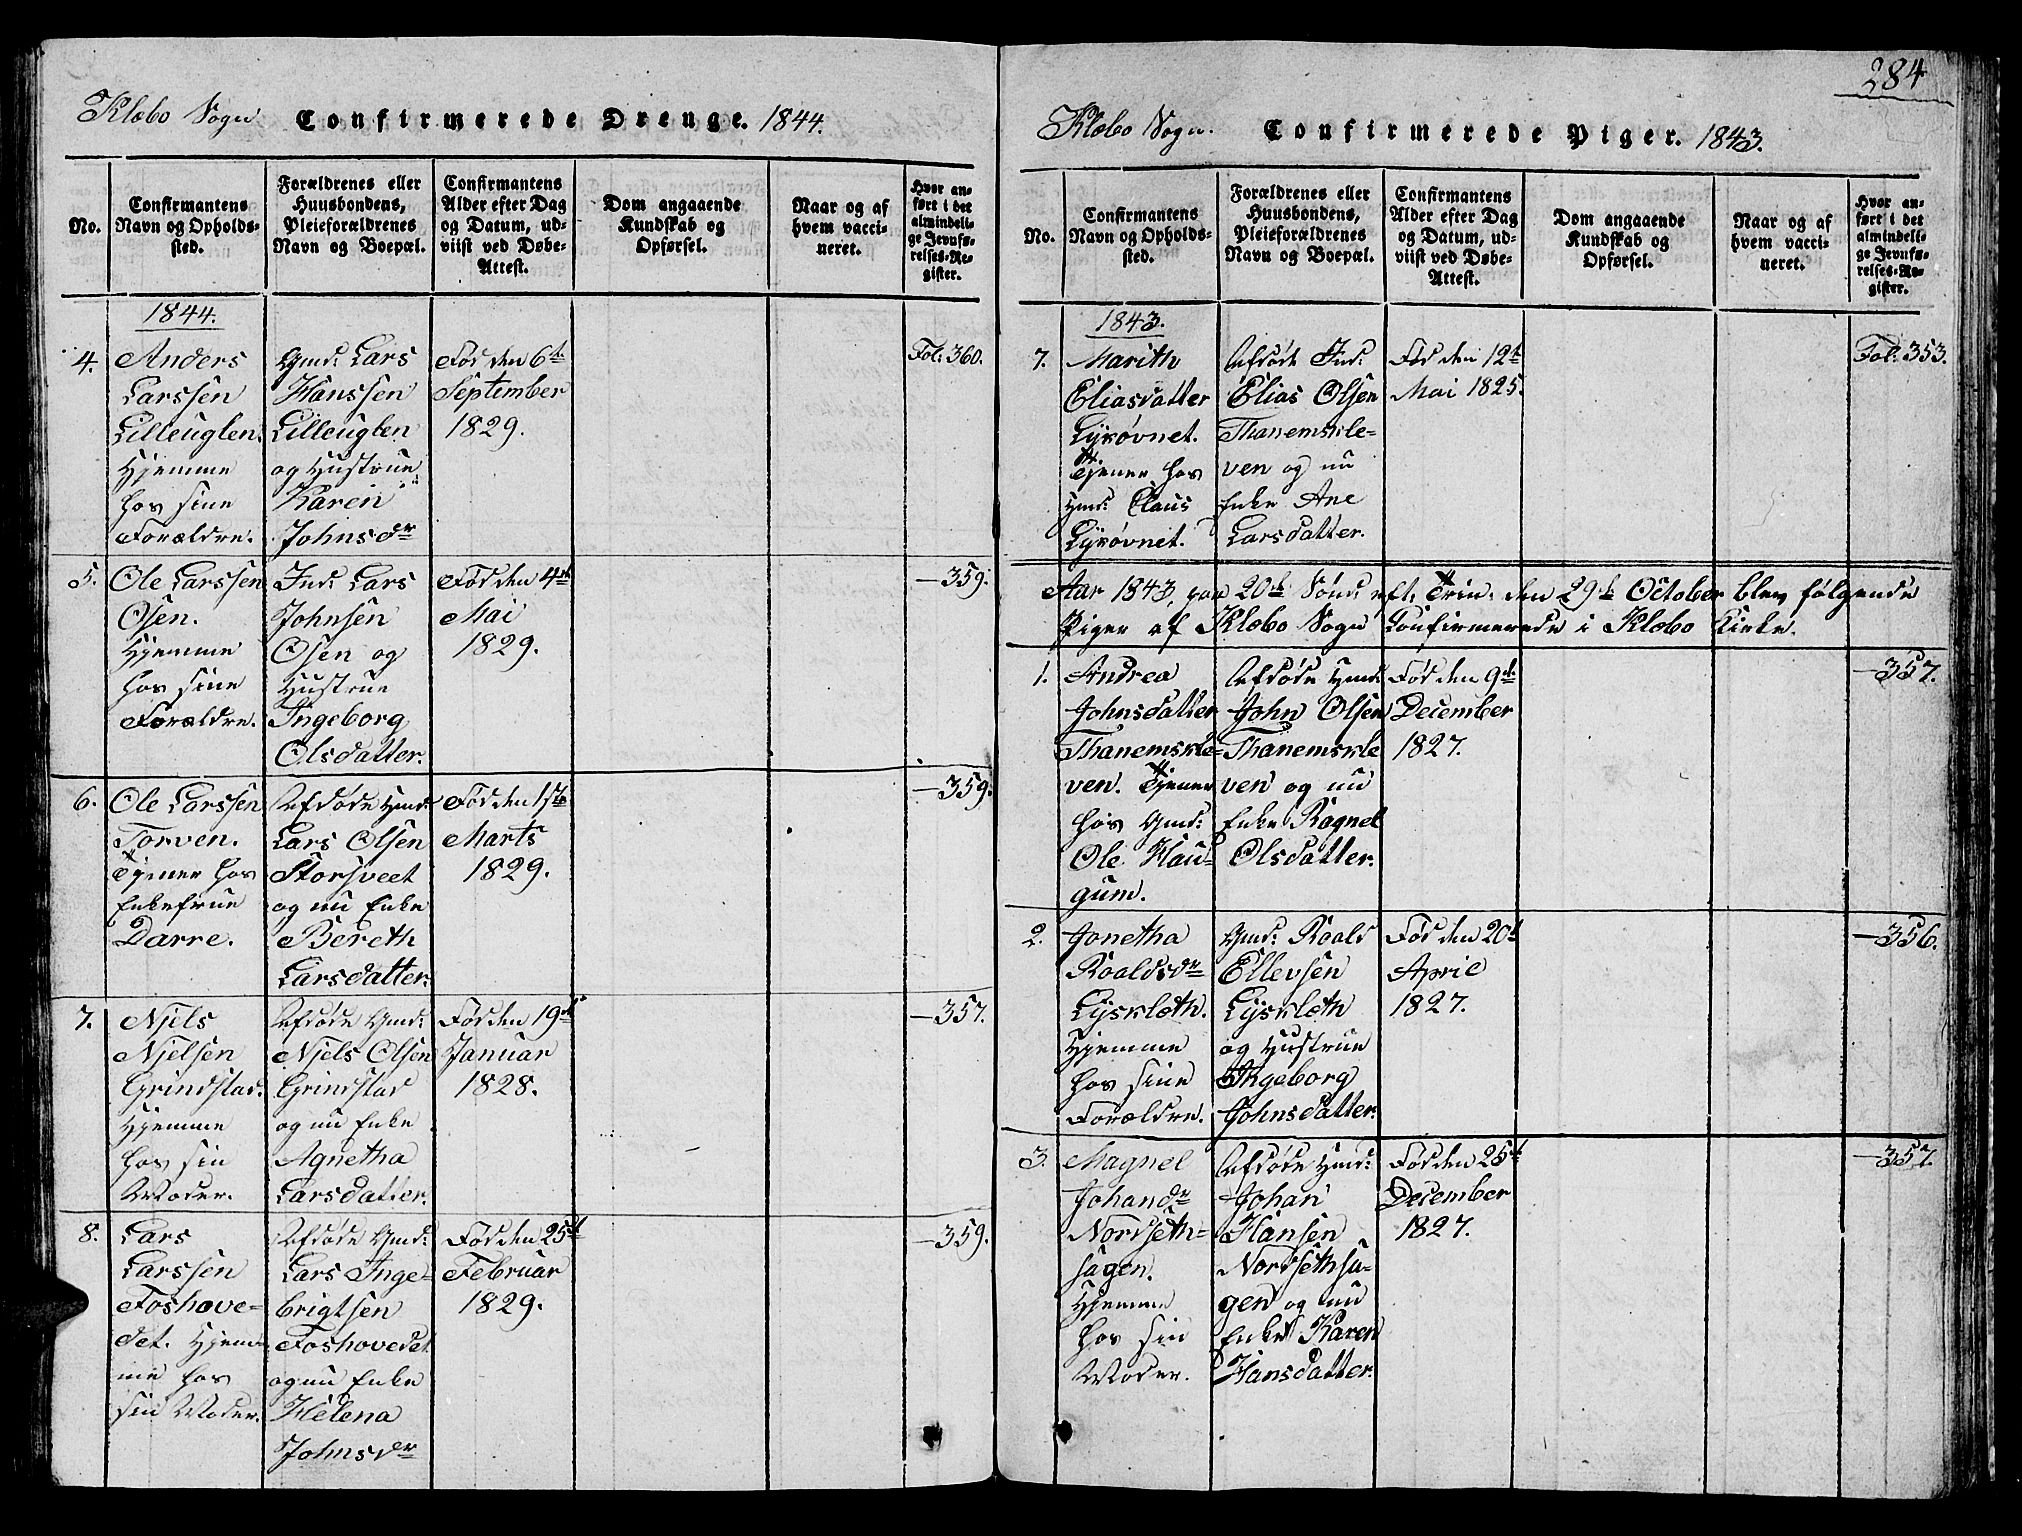 Klæbo Sogn Confirmerede Drenge. 1844.
No.
Confirmantens
Navn og Opholds-
sted.
Forældrenes eller
Huusbondens,
Pleieforældrenes
Navn og Boepæl.
Confirmantens
Alder efter Dag
og Datum, ud-
viist ved Døbe-
Attest.
Dom angaaende
Kundskab og
Opførsel.
Naar og af
hvem vacci-
neret.
Hvor an-
ført i det
almindeli-
ge Jevnfø-
relses-Re-
gister.
1844.
4.
Anders
Larssen
Lilleuglen.
Hjemme
hos sine
Forældre.
Gmd: Lars
Hanssen
Lilleuglen
og Hustrue
Karen
Johnsdr
Fød den 6te
September
1829.
Fol: 360.
5.
Ole Larssen
Osen.
Hjemme
hos sine
Forældre.
Ind: Lars
Johnsen
Osen og
Hustrue
Ingeborg
Olsdatter.
Fød den 4de
Mai
1829.
—359.
6.
Ole Larssen
Torven.
Tjener hos
Enkefrue
Darre.
Afdøde Hmd:
Lars Olsen
Storsveet
og nu Enke
Bereth
Larsdatter.
Fød den 17de
Marts
1829.
—359.
7.
Njels
Njelsen
Grindstad.
Hjemme
hos sin
Moder.
Afdøde Gmd:
Njels Olsen
Grindstad
og nu Enke
Agnetha
Larsdatter.
Fød den 19de
Januar
1828.
—357.
8.
Lars
Larssen
Foshove-
det. Hjem-
me hos
sin Moder.
Afdøde Gmd:
Lars Inge-
brigtsen
Foshovedet
og nu Enke
Helena
Johnsdr
Fød den 25de
Februar
1829.
—359.
284
Klæbo Sogn. Confirmerede Piger. 1843.
No.
Confirmantens
Navn og Opholds-
sted.
Forældrenes eller
Huusbondens,
Pleieforældrenes
Navn og Boepæl.
Confirmantens
Alder efter Dag
og Datum, ud-
viist ved Døbe-
Attest.
Dom angaaende
Kundskab og
Opførsel.
Naar og af
hvem vacci-
neret.
Hvor an-
ført i det
almindeli-
ge Jevnfø-
relses-Re-
gister.
1843.
7.
Marith
Eliasdatter
Lysøvnet.
Tjener hos
Hmd: Claus
Lysøvnet.
Afdøde Ind:
Elias Olsen
Thanemskle-
ven og nu
Enke Ane
Larsdatter.
Fød den 12te
Mai 1825.
Fol: 353.
Aar 1843, paa 20de Sønd: eft: Trin: den 29de October blev følgende
Piger af Klæbo Sogn Confirmerede i Klæbo Kirke.
1.
Andrea
Johnsdatter
Thanemskle-
ven. Tjener
hos Gmd:
Ole Hau-
gum.
Afdøde Hmd:
John Olsen
Thanemskle
ven og nu
Enke Ragnel
Olsdatter.
Fød den 9de
December
1827.
—357.
2.
Jonetha
Roaldsdr
Lysklæth.
Hjemme
hos sine
Forældre.
Gmd: Roald
Ellevsen
Lysklæth
og Hustrue
Ingeborg
Johnsdatter.
Fød den 20de
April
1827.
—356.
3.
Magnel
Johandr
Nordseth-
sagen.
Hjemme
hos sin
Moder.
Afdøde Hmd:
Johan
Hansen
Nordsethsa-
gen og nu
Enke Karen
Hansdatter.
Fød den 25de
December
1827.
—357.